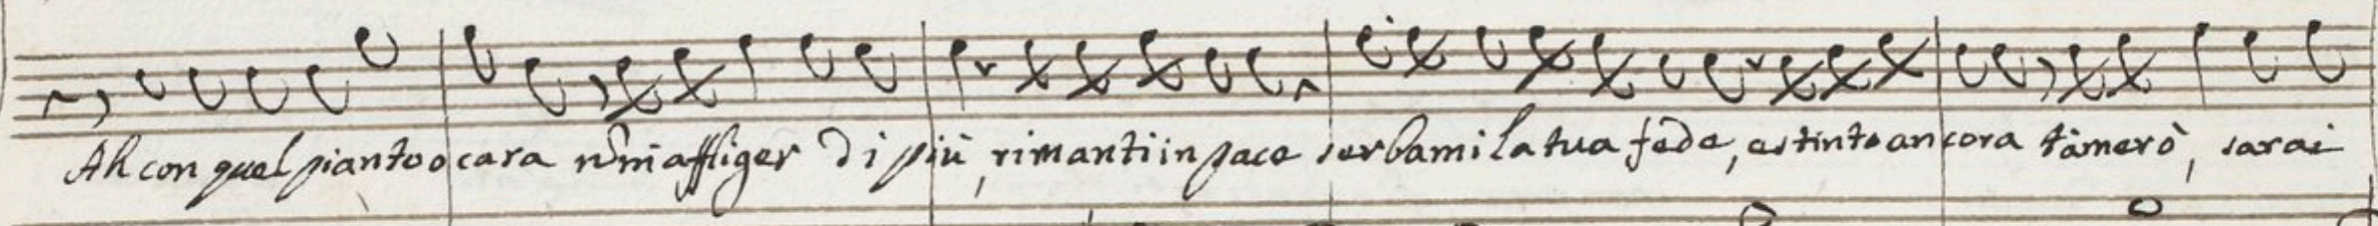 Ah con quel pianto o cara nõ m'affliger di più, rimanti in pace serbami la tua fede, estinto ancora t'amerò, sarai